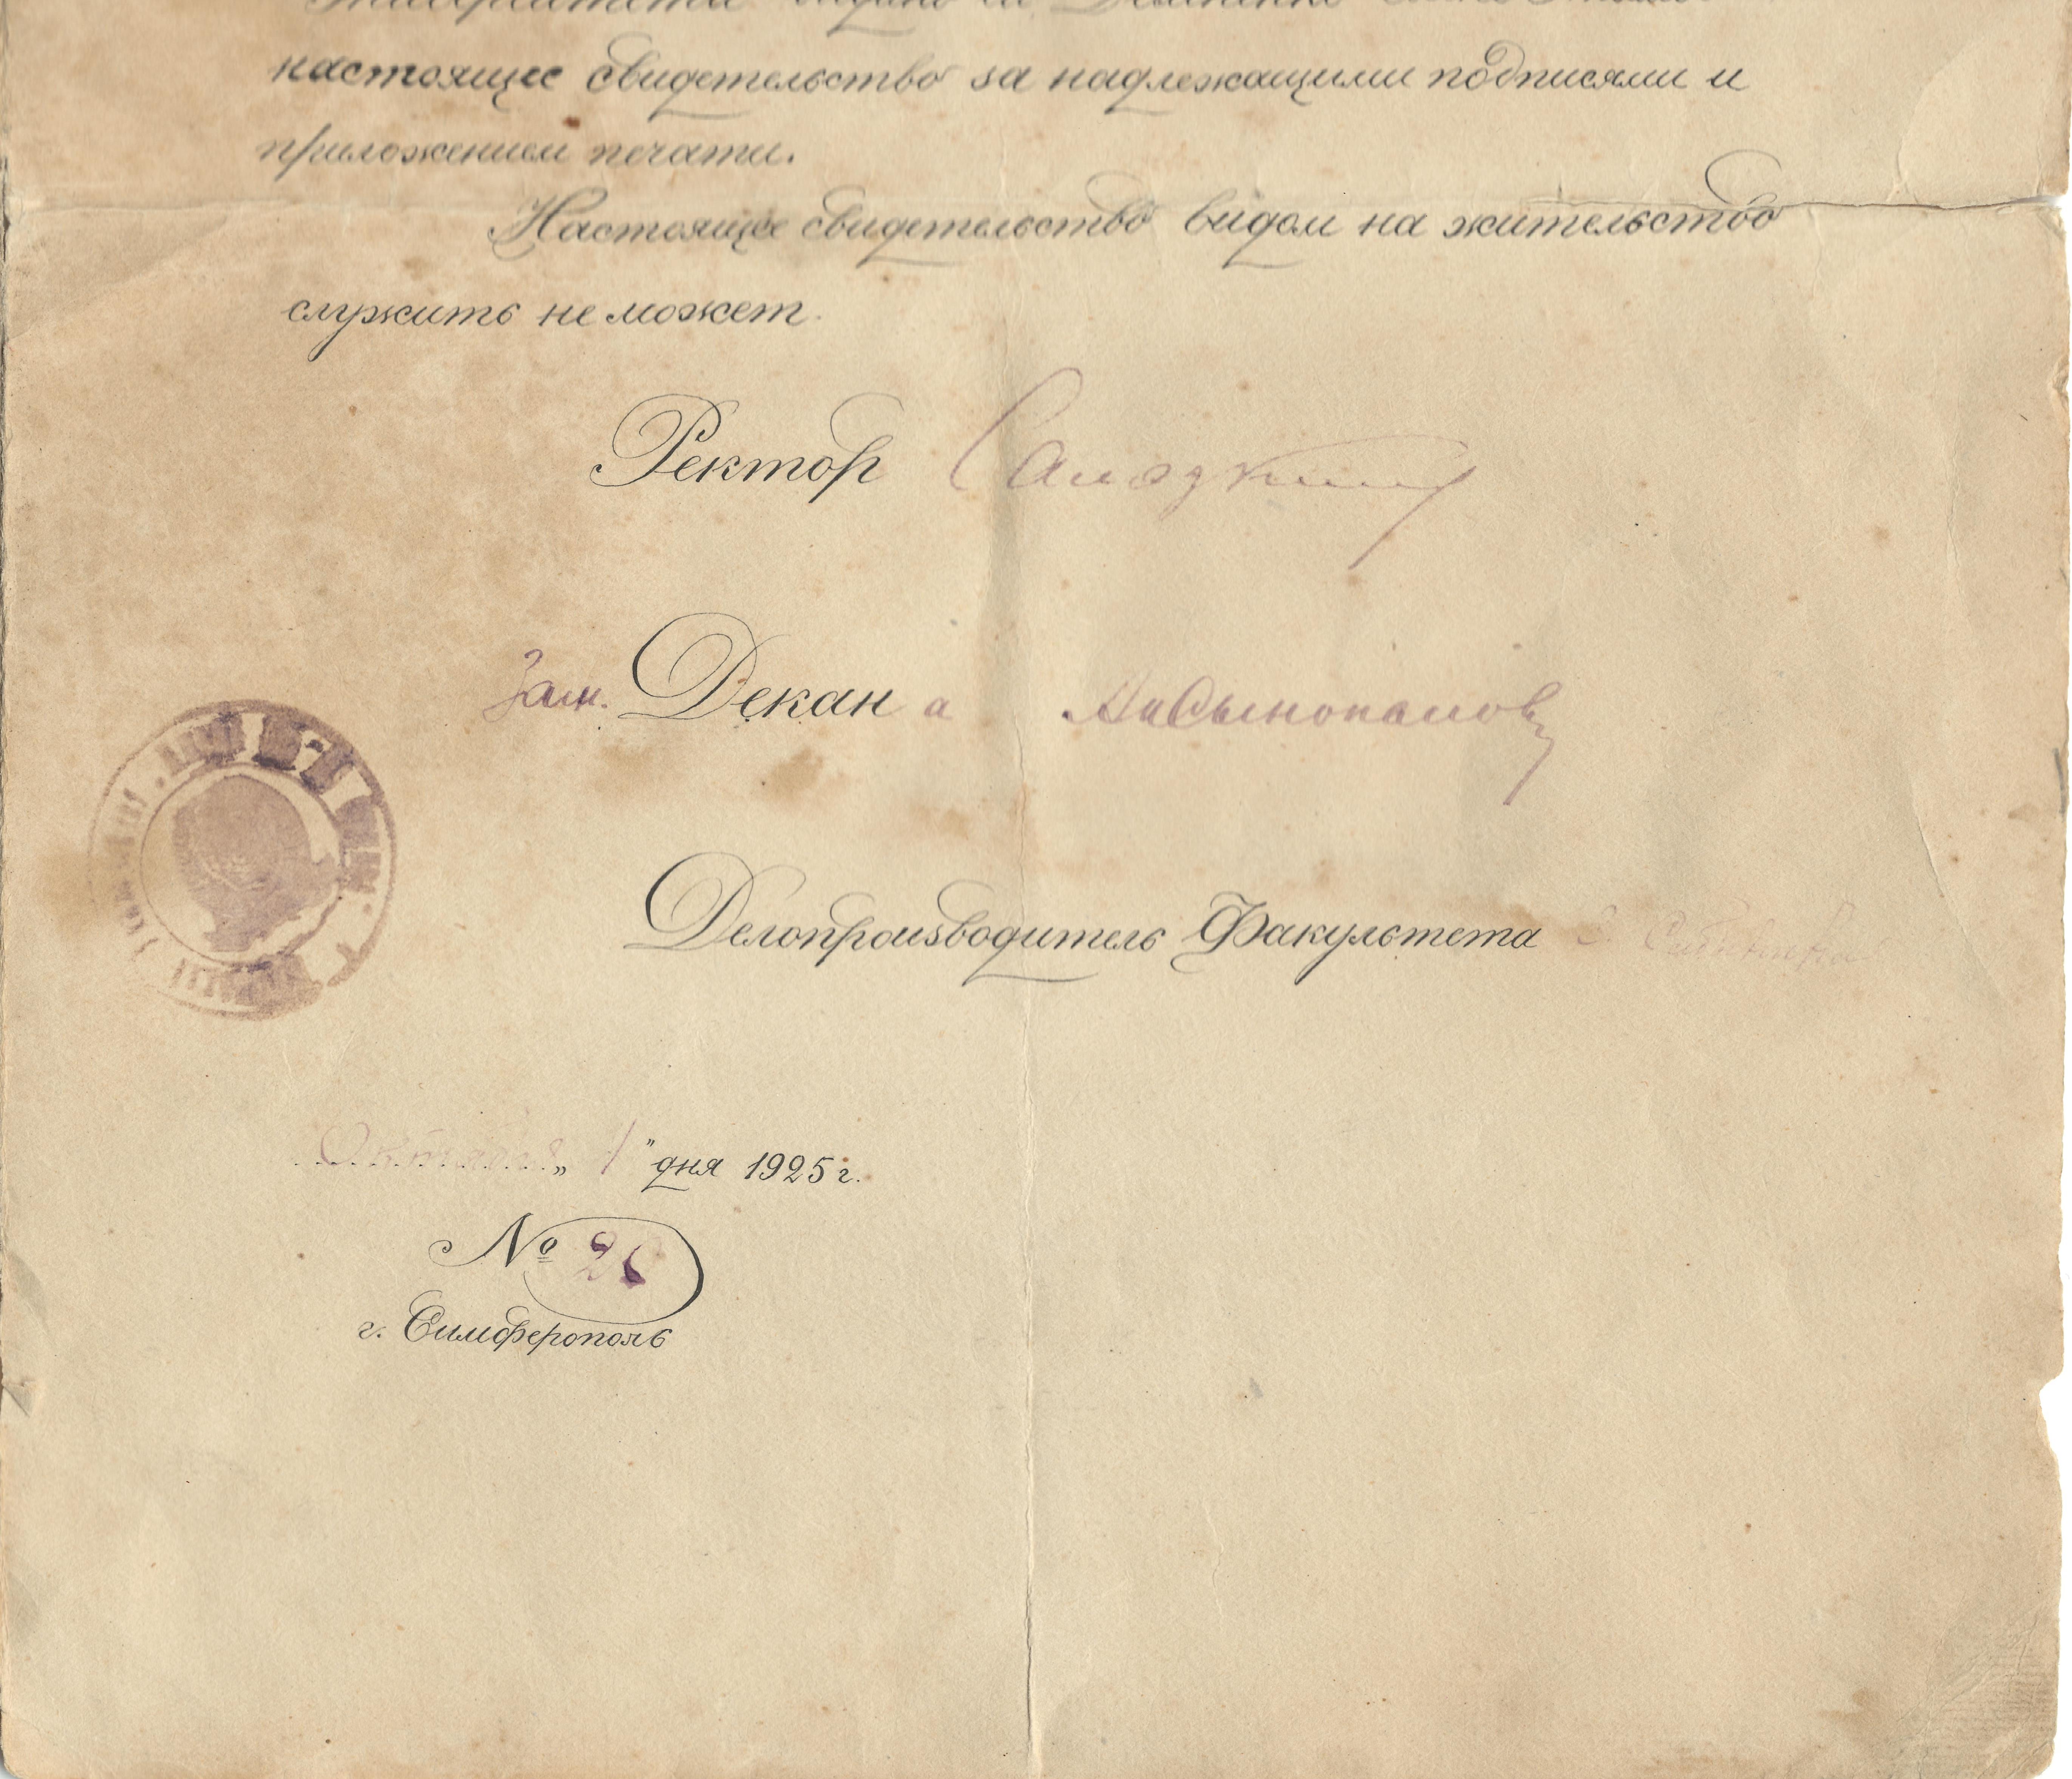 Университета выдано
настоящее свидетельство за надлежащими подписями и
приложением печати.
Настоящее свидетельство видом на жительство
служить не может.
Ректор
Зам. Декана
Делопроизводитель Факультета
Октября „1" дня 1925 г.
№ 26
г. Симферополь